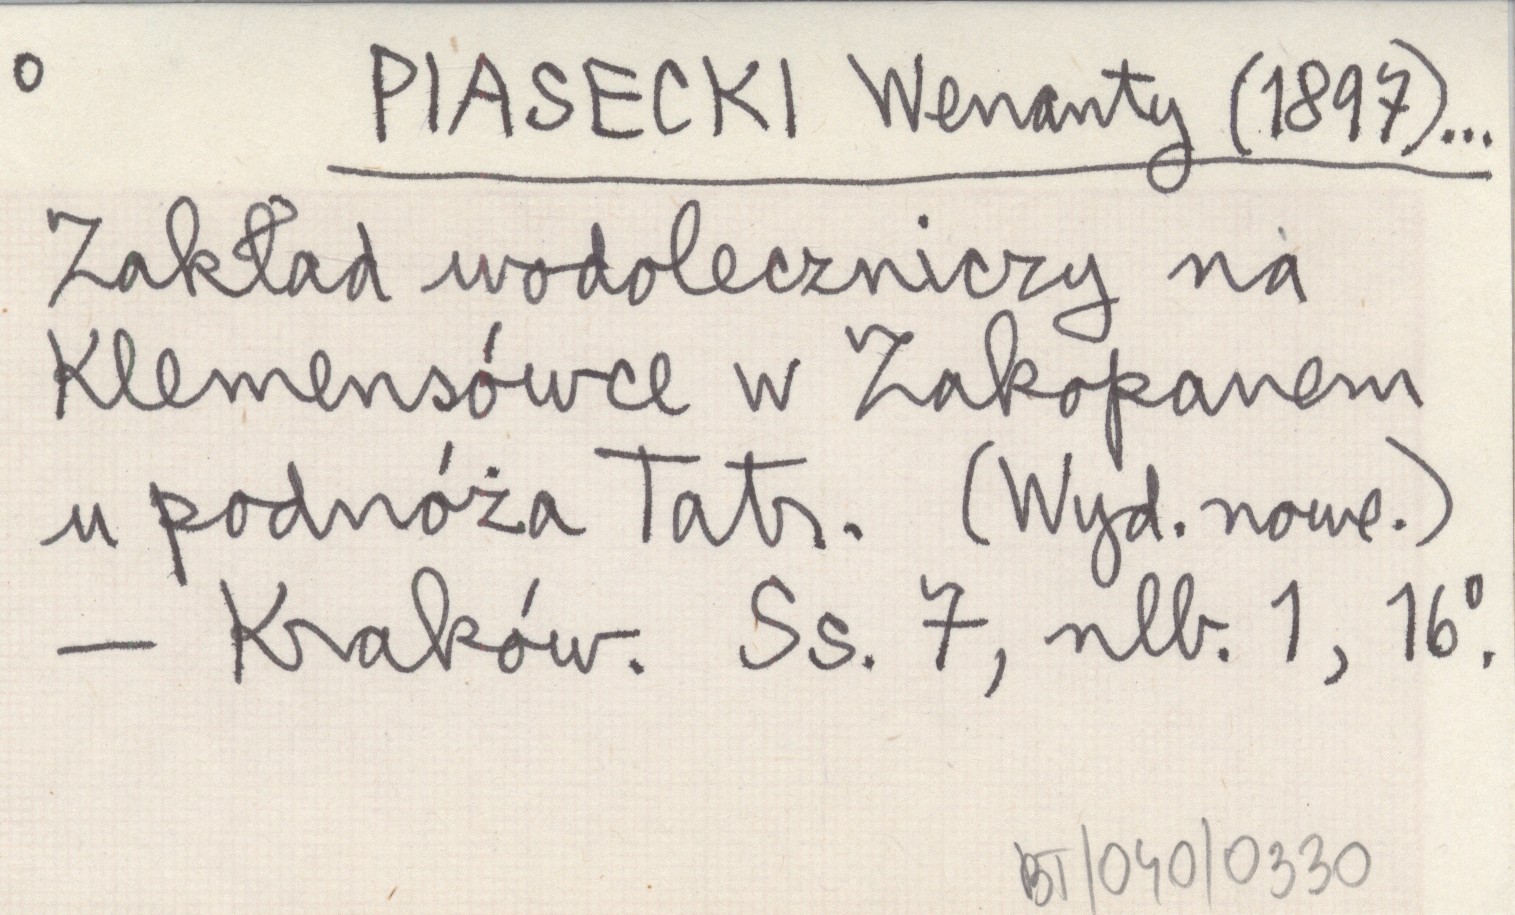 o PIASECKI Wenanty (1897)...
Zakład wodoleczniczy na
Klemensówce w Zakopanem
u podnóża Tatr. (Wyd. nowe.)
— Kraków. Ss. 7, nlb. 1, 16°.
BT/040/0330